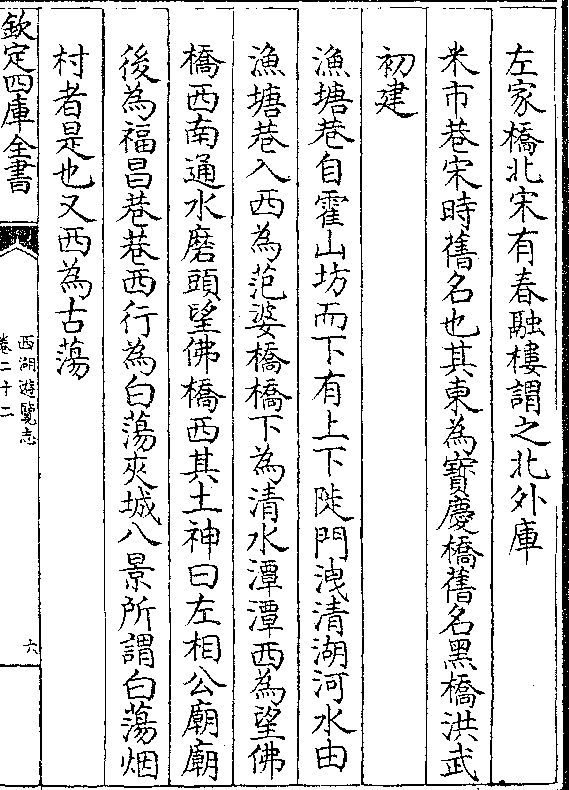 左家橋北宋有春融樓謂之北外庫
米市巷宋時舊名也其東為寶慶橋舊名黑橋洪武
初建
漁塘巷自霍山坊而下有上下陡門洩清湖河水由
漁塘巷入西為范婆橋橋下為清水潭潭西為望佛
橋西南通水磨頭望佛橋西其土神曰左相公廟廟
後為福昌巷巷西行為白蕩夾城八景所謂白蕩烟
村者是也又西為古蕩
欽定四庫全書
西湖遊覽志
卷二十二
六